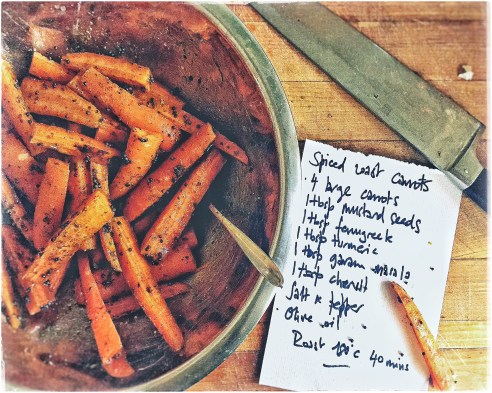 Spiced roast carrots
4 large carrots
1 tbsp mustard seeds
1 tbsp fenugreek
1 tbsp turmeric
1 tbsp garam masala
1 tbsp
Salt & pepper
Olive oil
Roast °c 40 mins